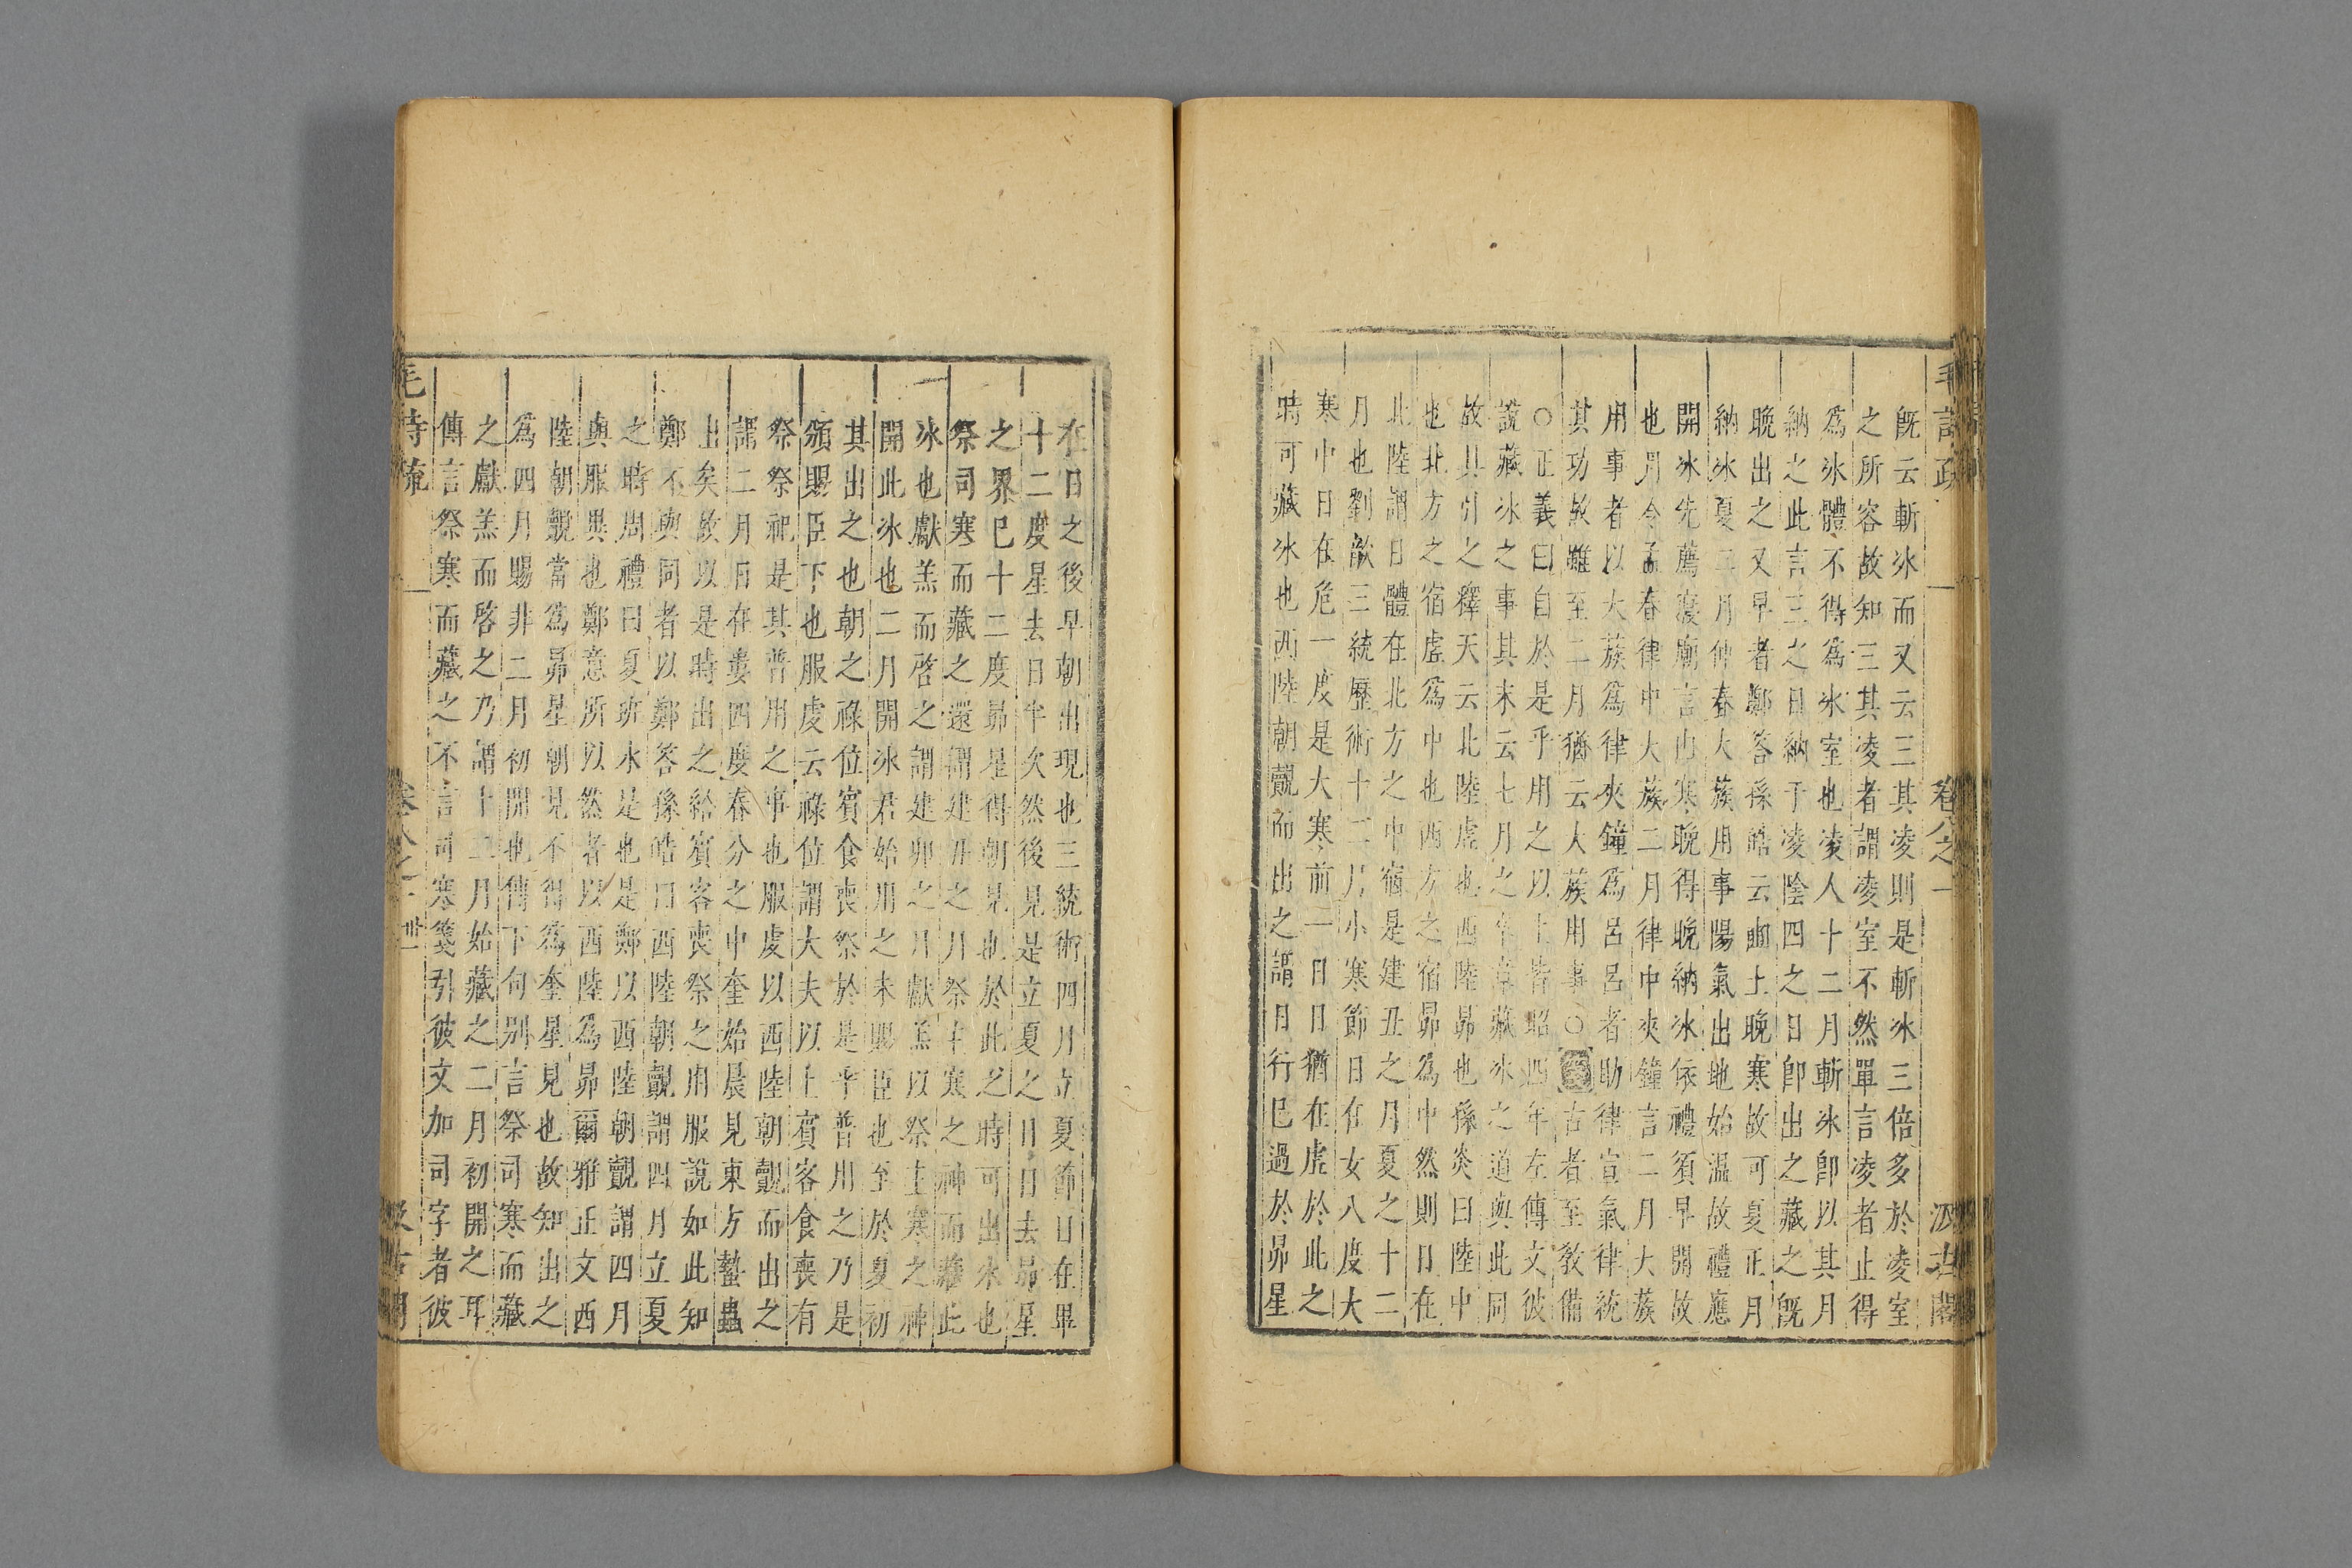 毛詩疏 卷八之一 汲古閣
既云斬冰而又云三其凌則是斬冰三倍多於凌室
之所容故知三其凌者謂凌室不然單言凌者止得
為冰體不得為冰室也凌人十二月斬冰即以其月
納之此言三之日納于凌陰四之日即出之藏之既
晚出之又早者鄭答孫皓云豳土晚寒故可夏正月
納冰夏二月仲春大蔟用事陽氣出地始溫故禮應
開冰先薦寢廟言由寒晚得晚納冰依禮須早開故
也月令孟春律中大蔟二月律中夾鐘言二月大蔟
用事者以大蔟為律夾鐘為呂呂者助律宣氣律統
其功故雖至二月猶云大蔟用事○箋古者至教備
○正義曰自於是乎用之以上皆昭四年左傳文彼
說藏冰之事其末云七月之卒章藏冰之道與此同
故具引之釋天云北陸虛也西陸昴也孫炎曰陸中
也北方之宿虛為中也西方之宿昴為中然則日在
北陸謂日體在北方之中宿是建丑之月夏之十二
月也劉歆三統歷術十二月小寒節日在女八度大
寒中日在危一度是大寒前一日日猶在虛於此之
時可藏冰也西陸朝覿而出之謂日行巳過於昴星
在日之後早朝出現也三統術四月立夏節日在畢
十二度星去日半次然後見是立夏之日日去昴星
之界巳十二度昴星得朝見也於此之時可出冰也
祭司寒而藏之還謂建丑之月祭主寒之神而藏此
冰也獻羔而啓之謂建卯之月獻羔以祭主寒之神
開此冰也二月開冰君始用之未賜臣也至於夏初
其出之也朝之祿位賓食喪祭於是乎普用之乃是
頒賜臣下也服虔云祿位謂大夫以上賓客食喪有
祭祭祀是其普用之事也服虔以西陸朝覿而出之
謂二月日在婁四度春分之中奎始晨見東方蟄蟲
出矣故以是時出之給賓客喪祭之用服說如此知
鄭不與同者以鄭答孫皓曰西陸朝覿謂四月立夏
之時周禮曰夏班冰是也是鄭以西陸朝覿謂四月
與服異也鄭意所以然者以西陸為昴爾雅正文西
陸朝覿當為昴星朝見不得為奎星見也故知出之
為四月賜非二月初開也傳下句別言祭司寒而藏
之獻羔而啓之乃謂十二月始藏之二月初開之耳
傳言祭寒而藏之不言司寒箋引彼文加司字者彼
毛詩疏 卷八之一 汲古閣